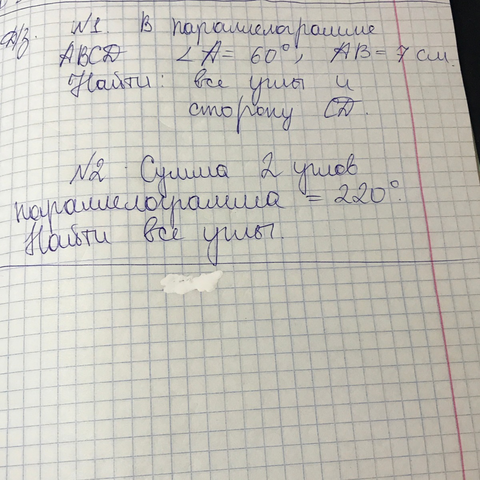 Д/з. №1. В параллелограмме
ABCD ∠A = 60°, AB = 7 см.
Найти: все углы и
сторону CD.
№2. Сумма 2 углов
параллелограмма = 220°.
Найти все углы.